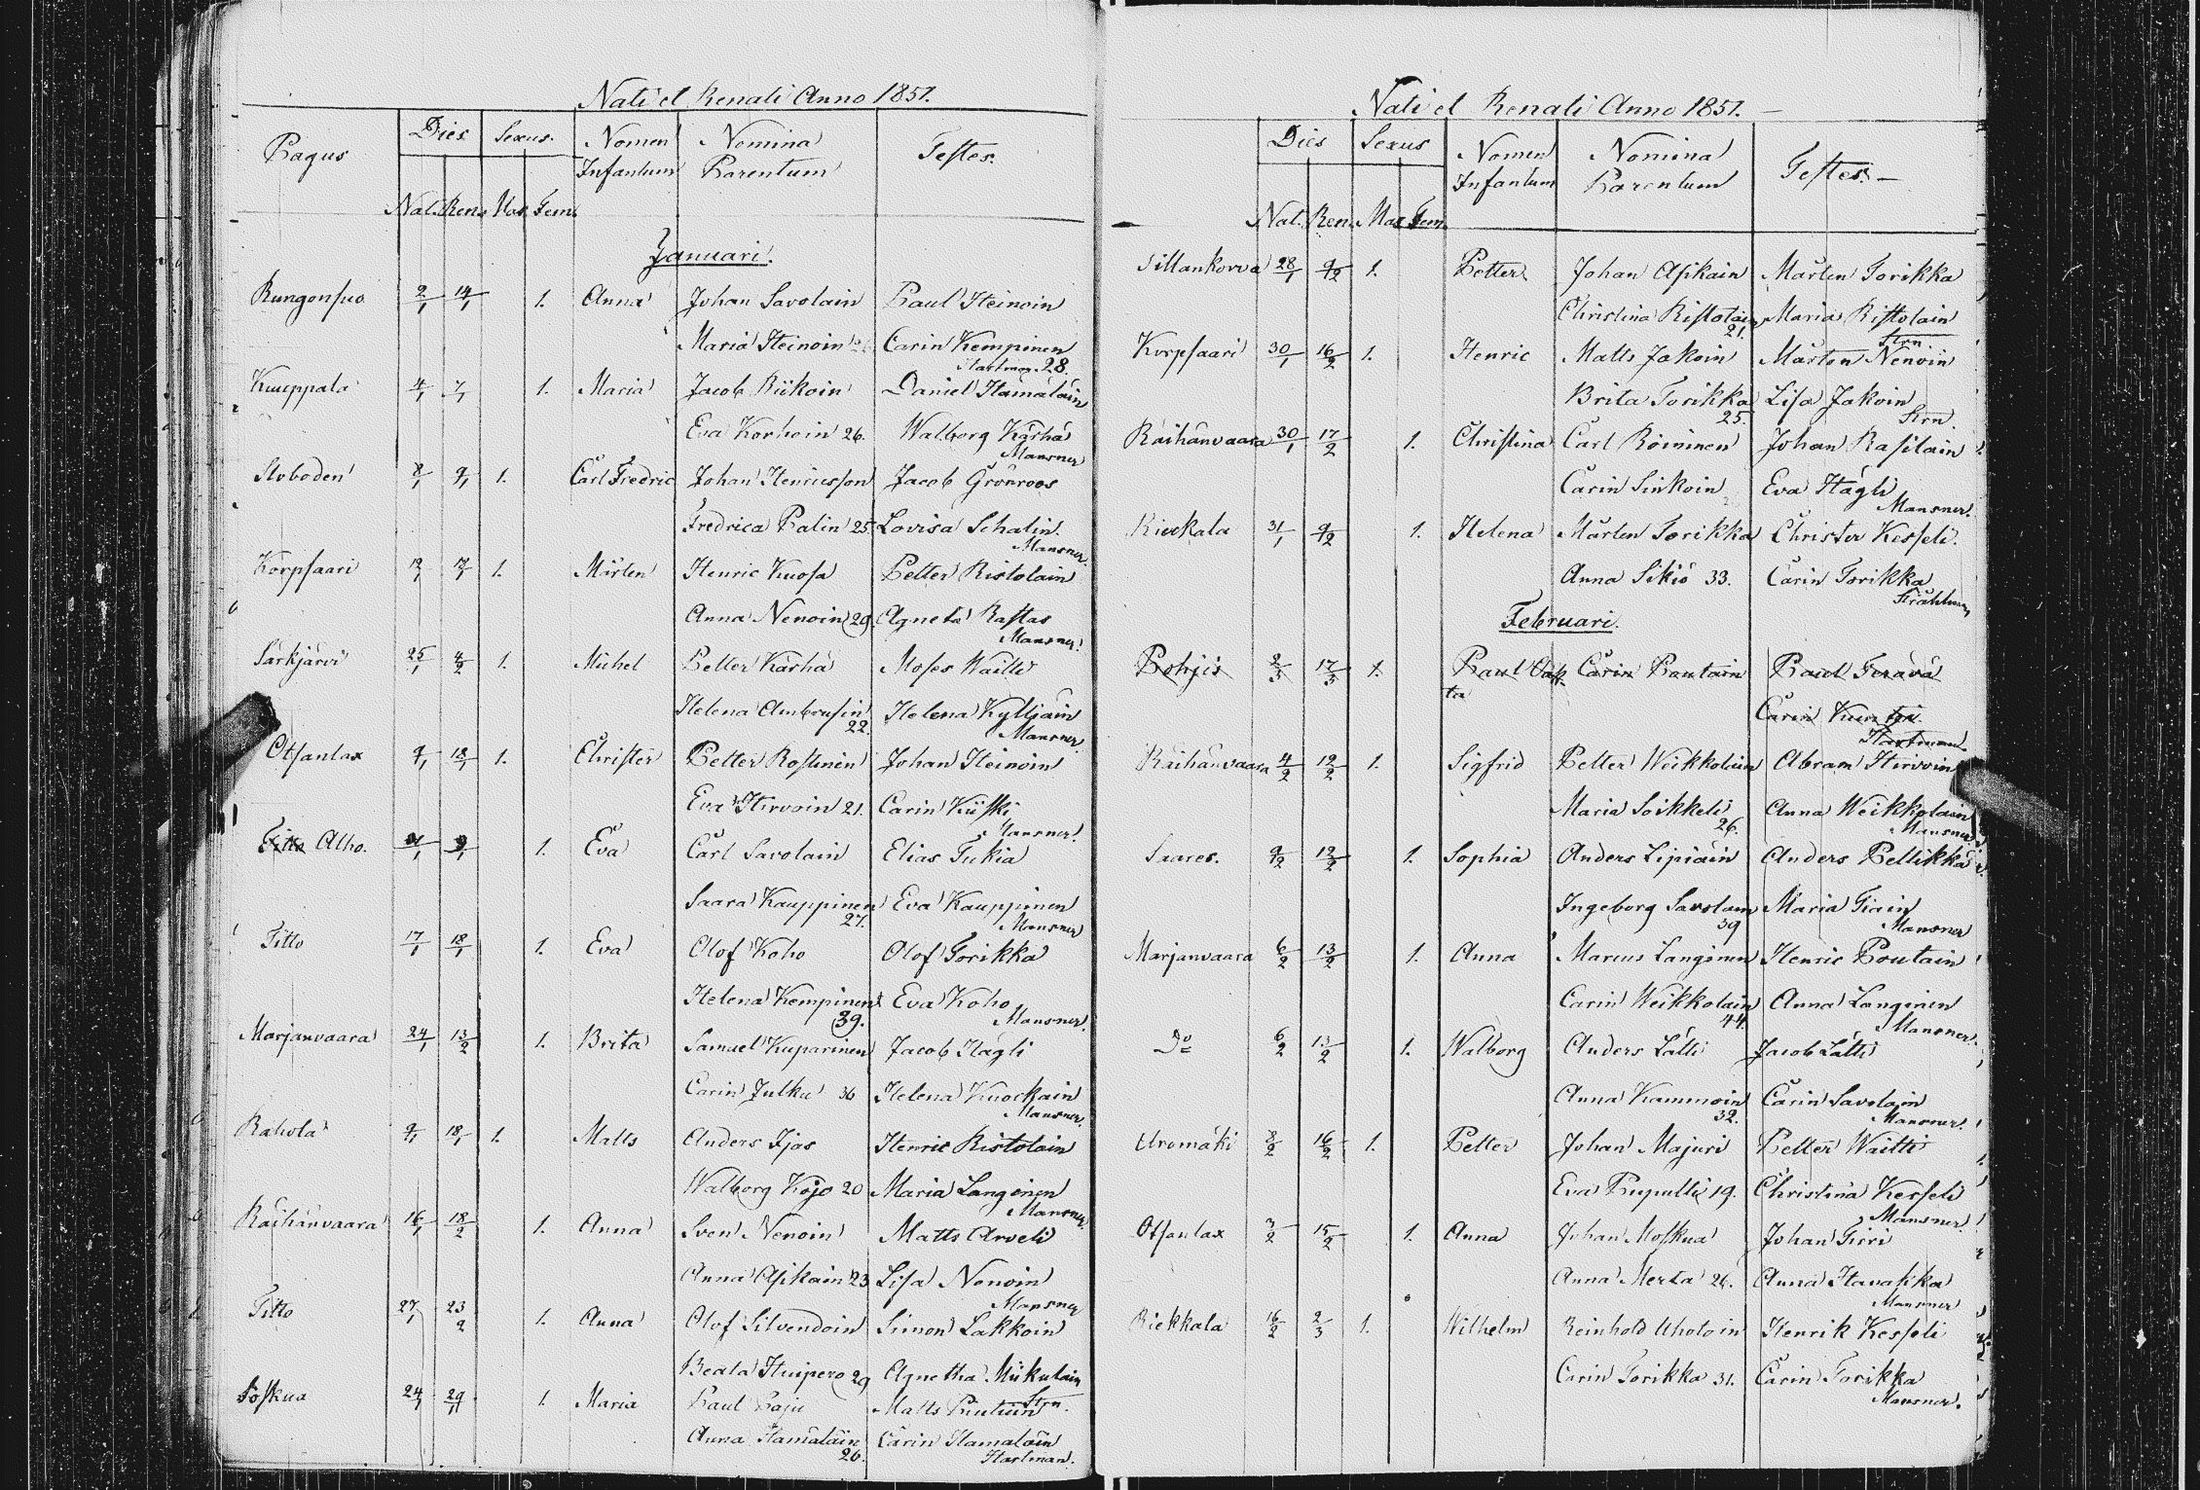 Nati et Renati Anno 1851.
Pagus Dies Sexus. Nomen Infantum Nomina Parentum Testes.
Nat. Ren. Mas. Fem.
Januari.
Rungonsuo 2/1 14/1 1. Anna Johan Savolain Paul Heinoin
Maria Heinoin Carin Kempinen
Hartman 28.
Kuuppala 4/1 7/1 1. Maria Jacob Riikoin Daniel Hämäläin
Eva Korhoin 26. Walborg Kärhä
Mansner
Sloboden 8/1 9/1 1. Carl Fredric Johan Henricsson Jacob Grönroos
Fredrica Palin 25. Lovisa Schalin.
Mansner.
Korpsaari 12/1 17/1 1. Mårten Henric Kuosa Petter Ristolain
Anna Nenoin 29. Agneta Rastas
Mansner.
Särkjärvi 25/1 4/2 1. Michel Petter Kärhä Moses Waitti
Helena Ambrusin 22. Helena Kylliäin
Mansner.
Otsanlax 9/1 18/1 1. Christer Petter Rossinen Johan Heinoin
Eva Hirvoin 21. Carin Kiiski
Mansner.
Titto Alho. 1. Eva Carl Savolain Elias Tukia
Saara Kauppinen 27. Eva Kauppinen
Mansner
Titto 17/1 18/1 1. Eva Olof Koho Olof Torikka
Helena Kempinen 39. Eva Koho
Mansner.
Marjanvaara 24/1 13/2 1. Brita Samuel Kuparinen Jacob Hägli
Carin Julku 36 Helena Kuockain
Mansner.
Rahola 9/1 18/1 1. Matts Anders Ijas Henric Ristolain
Walborg Kojo 20 Maria Langinen
Mansner.
Räihänvaara 16/1 18/2 1. Anna Sven Nenoin Matts Arveli
Anna Asikain 23 Lisa Nenoin
Mansner
Titto 27/1 23/2 1. Anna Olof Silvendoin Simon Lakkoin
Beata Huipero 29 Agnetha Miikulain
Strn.
Soskua 24/1 29/1 1. Maria Paul Paju Matts
Anna Hämäläin 26. Carin Hamaläin
Hartman.
Nati et Renati Anno 1851. —
Dies Sexus Nomen Infantum Nomina Parentum Testes. —
Nat. Ren. Mas Fem.
Sillankorva 28/1 9/2 1. Petter Johan Asikain Mårten Torikka
Christina Ristolain 21. Maria Ristolain
Strn.
Korpsaari 30/1 16/2 1. Henric Matts Jakoin Mårten Nenoin
Brita Torikka 25. Lisa Jakoin
Strn.
Räihänvaara 30/1 17/2 1. Christina Carl Röininen Johan Rasilain
Carin Sinkoin Eva Hägli
Mansner.
Rieckala 31/1 9/2 1. Helena Mårten Torikka Christer Kesseli.
Anna Sikiö 33. Carin Torikka
Stråhlman
Februari.
Pohjis 2/3 17/3 1. Paul Carin Pautain Paul Terävä
Carin
Hartman.
Räihänvaara 4/2 12/2 1. Sigfrid Petter Weikkolain Abram Hirvoin
Maria Soikkeli 26. Anna Weikkolain
Mansner
Saares. 9/2 12/2 1. Sophia Anders Lipiäin Anders Pellikka
Ingeborg Savolain 39 Maria Tiain
Mansner
Marjanvaara 6/2 13/2 1. Anna Marcus Langinen Henric Poutain
Carin Weikkolain 44. Anna Langinen
Mansner.
Do 6/2 13/2 1. Walborg Anders Lätti Jacob Lätti
Anna Kammoin 32. Carin Savolain
Mansner.
Uromäki 8/2 16/2 1. Petter Johan Majuri Petter Waitti
Eva Pupulli 19. Christina Kesseli
Mansner.
Otsanlax 3/2 15/2 1. Anna Johan Moskua Johan Tirri
Anna Merta 26. Anna Havakka
Mansner
Riekkala 16/2 2/3 1. Wilhelm Reinhold Uhotoin Henrik Kesseli
Carin Torikka 31. Carin Torikka
Mansner.